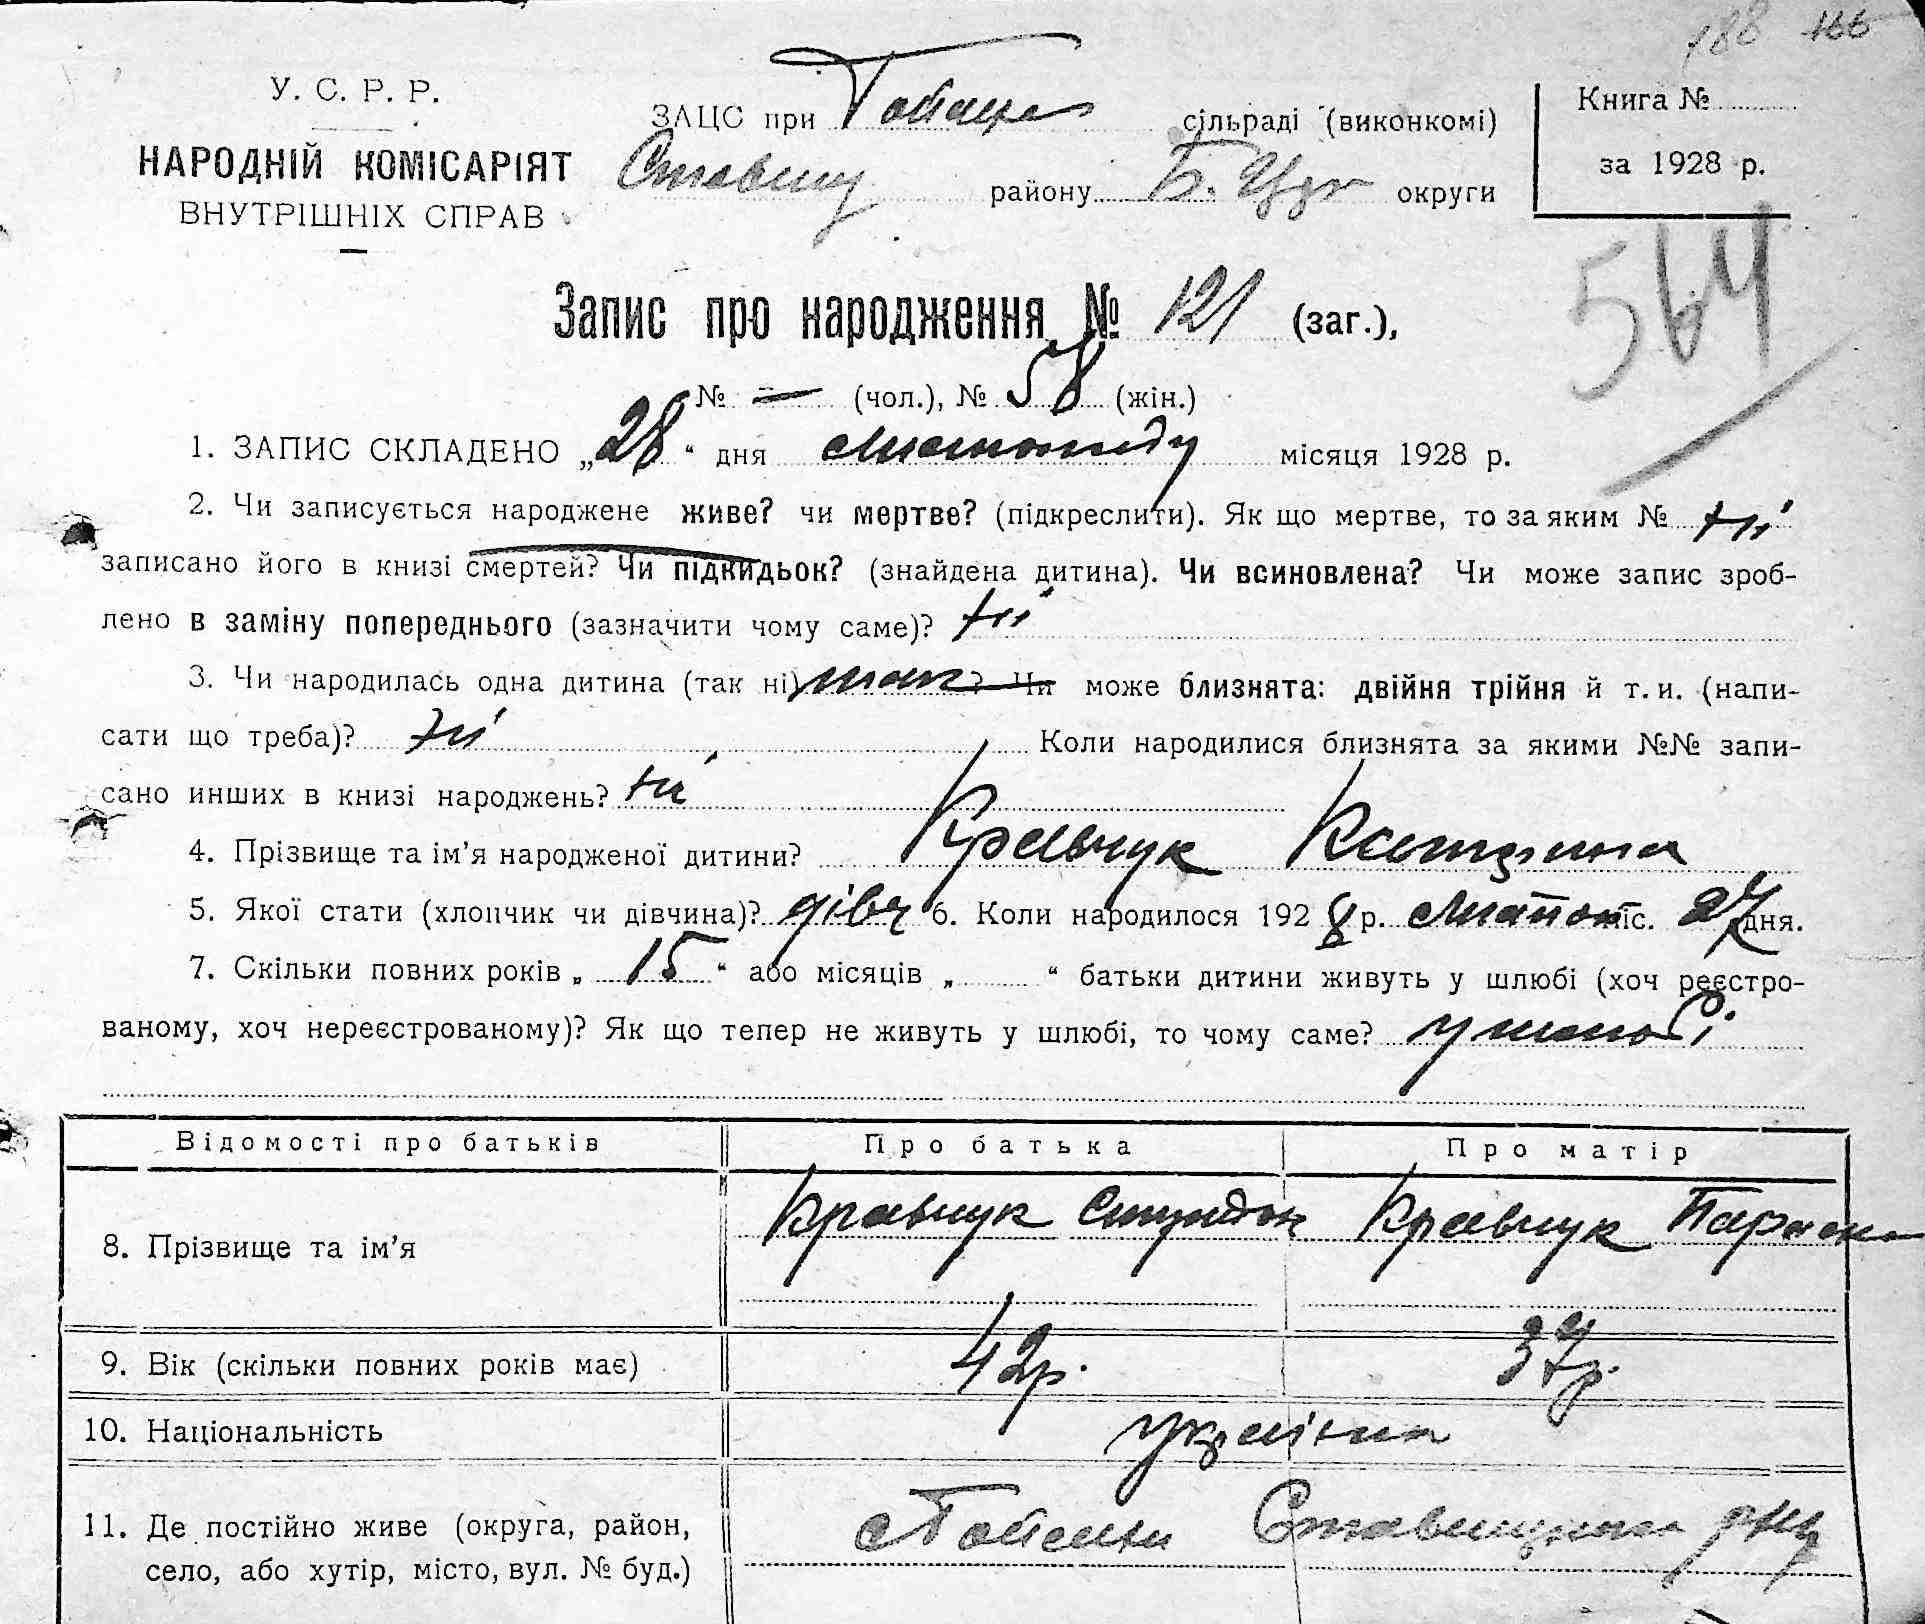 188 166
У. С. Р. Р.
НАРОДНІЙ КОМІСАРІЯТ
ВНУТРІШНІХ СПРАВ
ЗАЦС при сільраді (виконкомі)
Ставищ району Б. Церк округи
Книга №
за 1928 р.
564
Запис про народження № 121 (заг.),
№ — (чол.), № 58 (жін.)
1. ЗАПИС СКЛАДЕНО „28“ дня листопаду місяця 1928 р.
2. Чи записується народжене живе? чи мертве? (підкреслити). Як що мертве, то за яким № ні
записано його в книзі смертей? Чи підкидьок? (знайдена дитина). Чи всиновлена? Чи може запис зроб-
лено в заміну попереднього (зазначити чому саме)? ні
3. Чи народилась одна дитина (так ні) так? Чи може близнята: двійня трійня й т. и. (напи-
сати що треба)? ні Коли народилися близнята за якими №№ запи-
сано инших в книзі народжень? ні
4. Прізвище та ім’я народженої дитини? Кравчук Катерина
5. Якої стати (хлопчик чи дівчина)? дівч 6. Коли народилося 1928 р. листоп міс. 27 дня.
7. Скільки повних років „15“ або місяців „ “ батьки дитини живуть у шлюбі (хоч реєстро-
ваному, хоч нереєстрованому)? Як що тепер не живуть у шлюбі, то чому саме? у шлюбі
Відомості про батьків Про батька Про матір
8. Прізвище та ім’я Кравчук Кравчук Параска
9. Вік (скільки повних років має) 42р. 37р.
10. Національність україн
11. Де постійно живе (округа, район,
село, або хутір, місто, вул. № буд.)